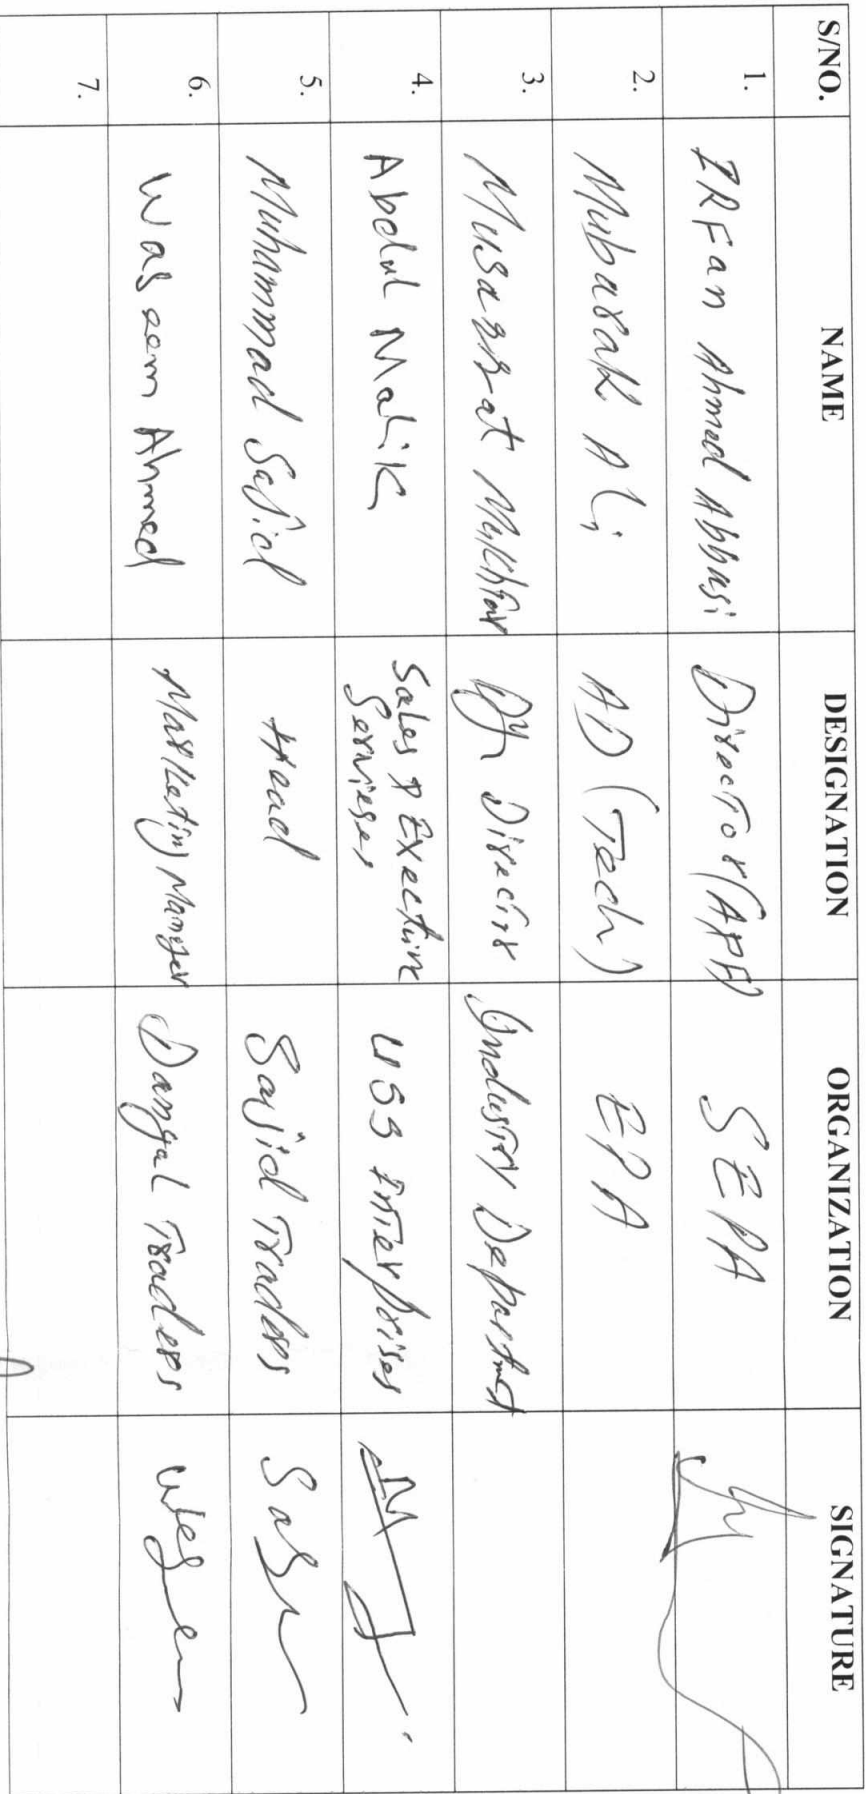 S/NO. NAME DESIGNATION ORGANIZATION SIGNATURE
1. IRFan Ahmed Abbasi Director (APA) SEPA
2. Mubarak Ali AD (Tech) EPA
3. Musarrat Mukhtar Dy Director Industry Department
4. Abdul Malik Sales & Exective USS Enterprises
Servieses
5. Muhammad Sajid Head Sajid Traders
6. Waseem Ahmed Marketing Manger Dangal Traders
7.